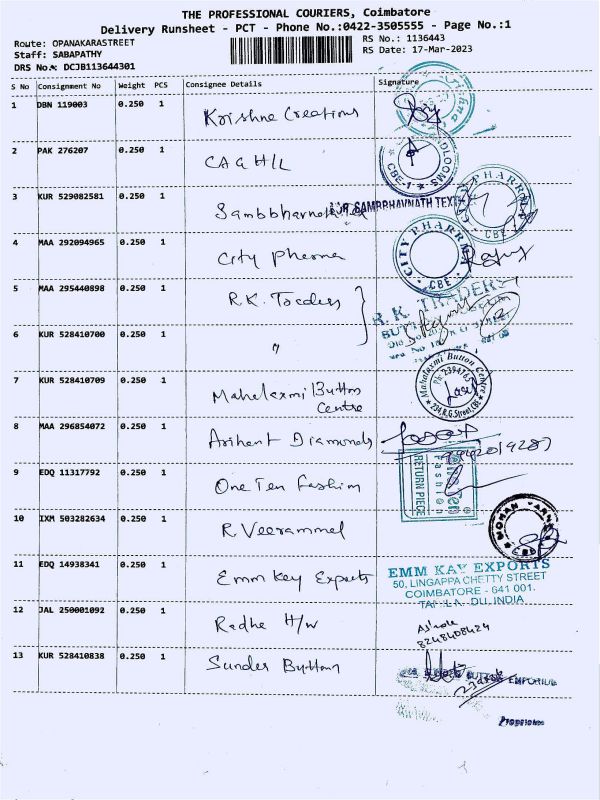 THE PROFESSIONAL COURIERS, Coimbatore
Delivery Runsheet - PCT - Phone No.:0422-3505555 - Page No.:1
Route: OPANAKARASTREET
RS No.: 1136443
Staff: SABAPATHY
RS Date: 17-Mar-2023
DRS No.: DCJB113644301
S No Consignment No Weight PCS Consignee Details Signature
1 DBN 119003 0.250 1 Krishna Creations
2 PAK 276207 0.250 1 CAGH/L
CBE-1
3 KUR 529082581 0.250 1 Sambbhavnath Tex
SAMBBHAVNATH TEXT
CITY PHARMA
4 MAA 292094965 0.250 1 City Pharma
CITY PHARMA
CBE
5 MAA 295440898 0.250 1 R.K. Traders
R.K. TRADERS
6 KUR 528410700 0.250 1 "
7 KUR 528410709 0.250 1 Mahalaxmi Button
Centre
Mahalaxmi Button Centre
Ph: 2394763
234, R.G.Street, CBE
8 MAA 296854072 0.250 1 Arihant Diamonds
9 EDQ 11317792 0.250 1 One Ten Fashion
Fashion
RETURN PIECE
10 IXM 503282634 0.250 1 R. Veerammal
MOHAN
11 EDQ 14938341 0.250 1 Emm Kay Exports
EMM KAY EXPORTS
50, LINGAPPA CHETTY STREET
COIMBATORE - 641 001.
INDIA
12 JAL 250001092 0.250 1 Radhe H/w
Ashok
8248408424
13 KUR 528410838 0.250 1 Sunder Button
BUTTON EMPORIUM
Proprietor